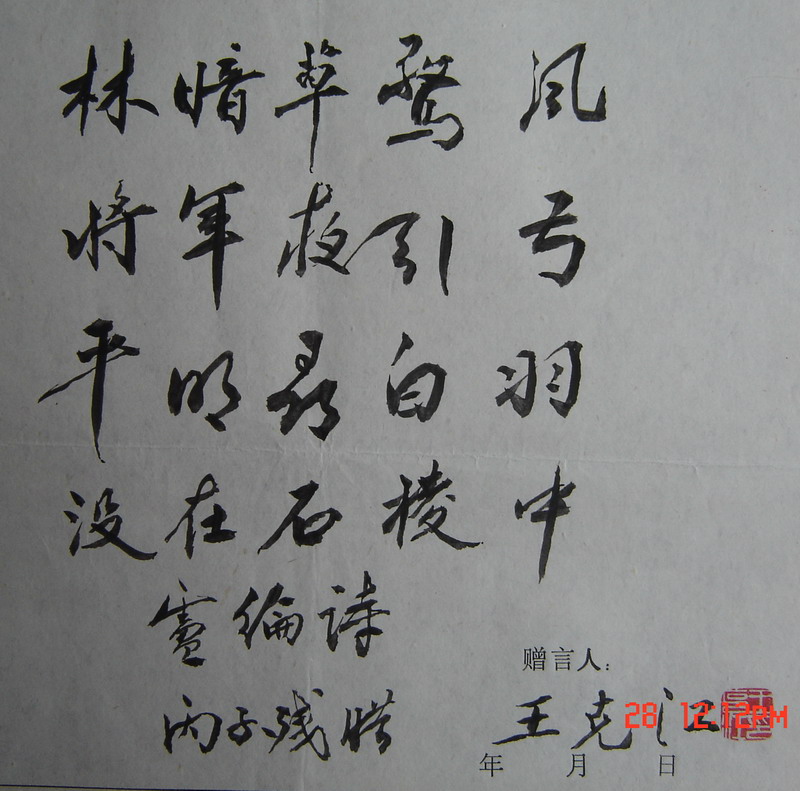 林暗草驚风
将军夜引弓
平明尋白羽
没在石棱中
盧綸詩
丙子残腊
赠言人：
王克江
28 12:12PM
年 月 日